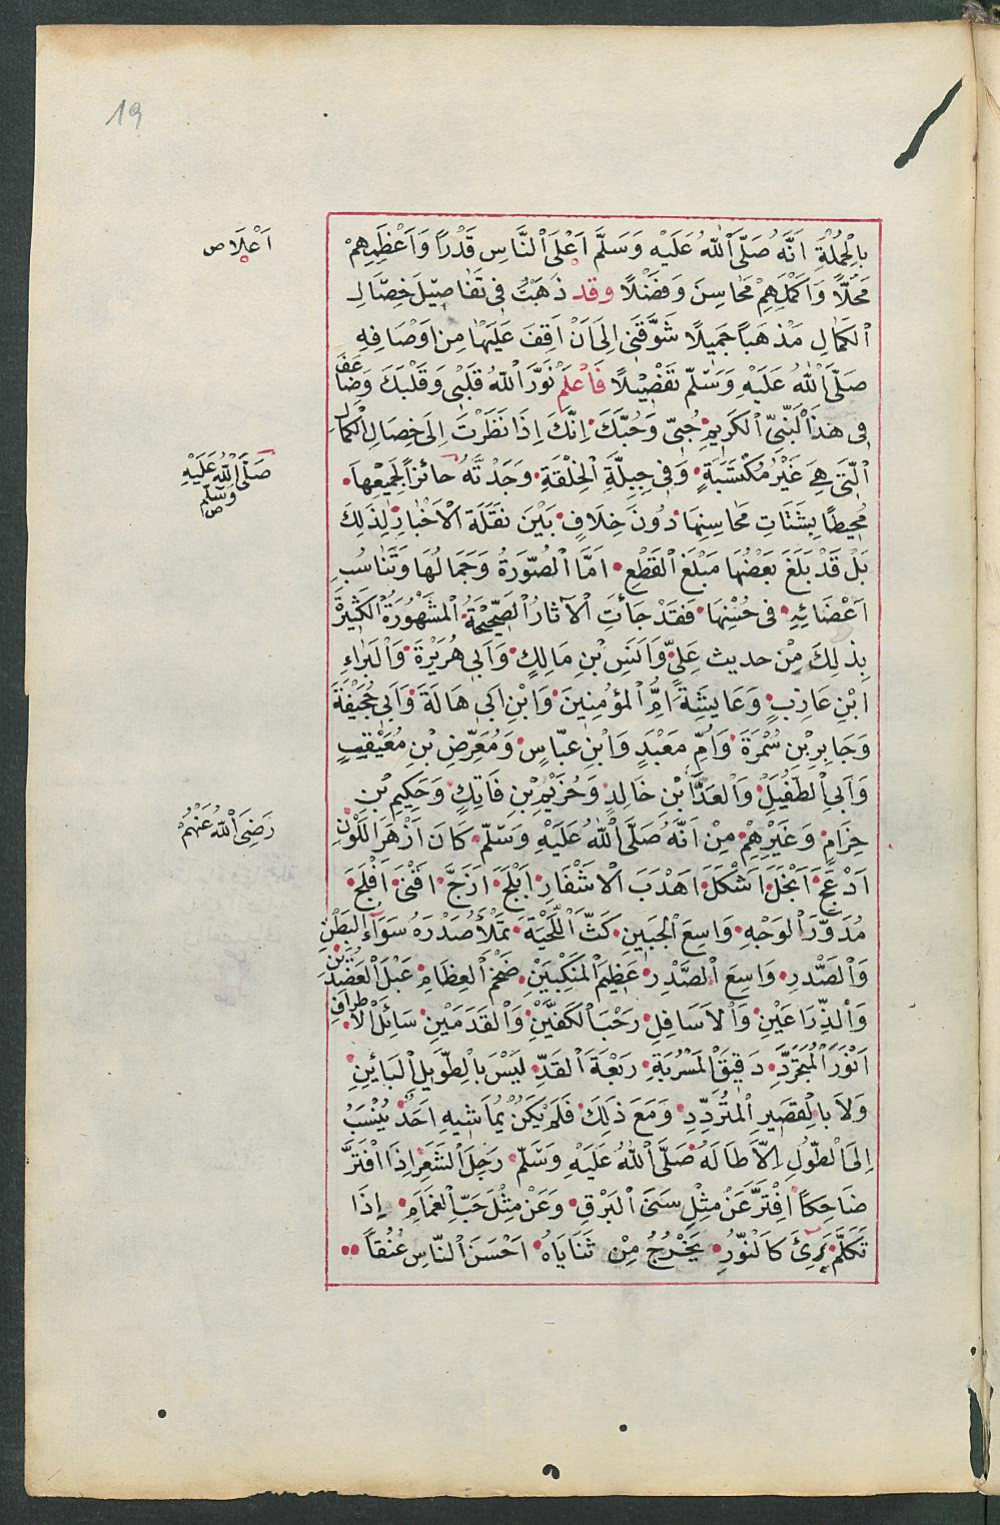 19
بِالْجُمْلَةِ اَنَّهُ صَلَّى اللّٰهُ عَلَيْهِ وَسَلَّمَ اَعْلَى النَّاسِ قَدْرًا وَاَعْظَمِهِمْ
اَعْلَا ص
مَحَلًّا وَاَكْمَلِهِمْ مَحَاسِنَ وَفَضْلًا وقد ذَهَبْتُ فِى تَفَاصِيلِ خِصَالِ
الْكَمَالِ مَذْهَبًا جَمِيلًا شَوَّقَنِى اِلَى اَنْ اَقِفَ عَلَيْهَا مِنْ اَوْصَافِهِ
صَلَّى اللّٰهُ عَلَيْهِ وَسَلَّمَ تَفْضِيْلًا فَاعْلَمْ نَوَّرَ اللّٰهُ قَلْبِى وَقَلْبَكَ وَضَاعَفَ
فِى هٰذَا النَّبِىِّ الْكَرِيمِ حُبِّى وَحُبَّكَ اِنَّكَ اِذَا نَظَرْتَ اِلَى خِصَالِ الْكَمَالِ
الَّتِى هِىَ غَيْرُ مُكْتَسَبَةٍ وَفِى جِبِلَّةِ الْخِلْقَةِ وَجَدْتَهُ حَائِزًا لِجَمِيْعِهَا
صَلَّى اللّٰهُ عَلَيْهِ
وَسَلَّمَ
ص
مُحِيطًا بِشَتَاتِ مَحَاسِنِهَا دُونَ خِلَافٍ بَيْنَ نَقَلَةِ الْاَخْبَارِ لِذٰلِكَ
بَلْ قَدْ بَلَغَ بَعْضُهَا مَبْلَغَ الْقَطْعِ اَمَّا الصُّوْرَةُ وَجَمَالُهَا وَتَنَاسُبُ
اَعْضَائِهِ فِى حُسْنِهَا فَقَدْ جَأَتِ الْآثَارُ الصَّحِيْحَةُ الْمَشْهُورَةُ الْكَثِيْرَةُ
بِذٰلِكَ مِنْ حديث عَلِىٍّ وَاَنَسِ بْنِ مَالِكٍ وَاَبِى هُرَيْرَةَ وَالْبَرَاءِ
ابْنِ عَازِبٍ وَعَايِشَةَ اُمِّ الْمُؤْمِنِينَ وَابْنِ اَبِى هَالَةَ وَاَبِى جُحَيْفَةَ
وَجَابِرِ بْنِ سُمْرَةَ وَاُمِّ مَعْبَدٍ وَابْنِ عبَّاسٍ وَمُعَرِّضِ بْنِ مُعَيْقِيبٍ
وَاَبِى الطُّفَيْلِ وَالْعَدَّا بْنِ خَالِدٍ وَخُزَيْمِ بْنِ فَاتِكٍ وَحَكِيمِ بْنِ
حِزَامٍ وَغَيْرِهِمْ مِنْ اَنَّهُ صَلَّى اللّٰهُ عَلَيْهِ وَسَلَّمَ كَانَ اَزْهَرَ اللَّوْنِ
رَضِىَ اللّٰهُ عَنْهُمْ
اَدْعَجَ اَنْجَلَ اَشْكَلَ اَهْدَبَ الْاَشْفَارِ اَبْلَجَ اَزَجَّ اَقْنَى اَفْلَجَ
مُدَوَّرَ الْوَجْهِ وَاسِعَ الْجَبِينِ كَثَّ اللِّحْيَةِ تَمْلَأُ صَدْرَهُ سَوَآءَ الْبَطْنِ
وَالصَّدْرِ وَاسِعَ الصَّدْرِ عَظِيمَ الْمَنْكِبَيْنِ ضَخْمَ الْعِظَامِ عَبْلَ الْعَضُدَيْنِ
وَالذِّرَاعَيْنِ وَالْاَسَافِلِ رَحْبَ الْكَفَّيْنِ وَالْقَدَمَيْنِ سَائِلَ الْاَطْرَافِ
اَنْوَرَ الْمُتَجَرَّدِ دَقِيقَ الْمَسْرُبَةِ رَبْعَةَ الْقَدِّ لَيْسَ بِالطَّوِيلِ الْبَايِنِ
وَلَا بِالْقَصِيرِ الْمُتَرَدِّدِ وَمَعَ ذٰلِكَ فَلَمْ يَكُنْ يُمَاشِيهِ اَحَدٌ يُنْسَبُ
اِلَى الطُّولِ اِلَّا طَالَهُ صَلَّى اللّٰهُ عَلَيْهِ وَسَلَّمَ رَجِلَ الشَّعْرِ اِذَا افْتَرَّ
ضَاحِكًا اِفْتَرَّ عَنْ مِثْلِ سَنَى الْبَرْقِ وَعَنْ مِثْلِ حَبِّ الْغَمَامِ اِذَا
تَكَلَّمَ رُئِىَ كَالنُّوْرِ يَخْرُجُ مِنْ ثَنَايَاهُ اَحْسَنَ النَّاسِ عُنُقًا